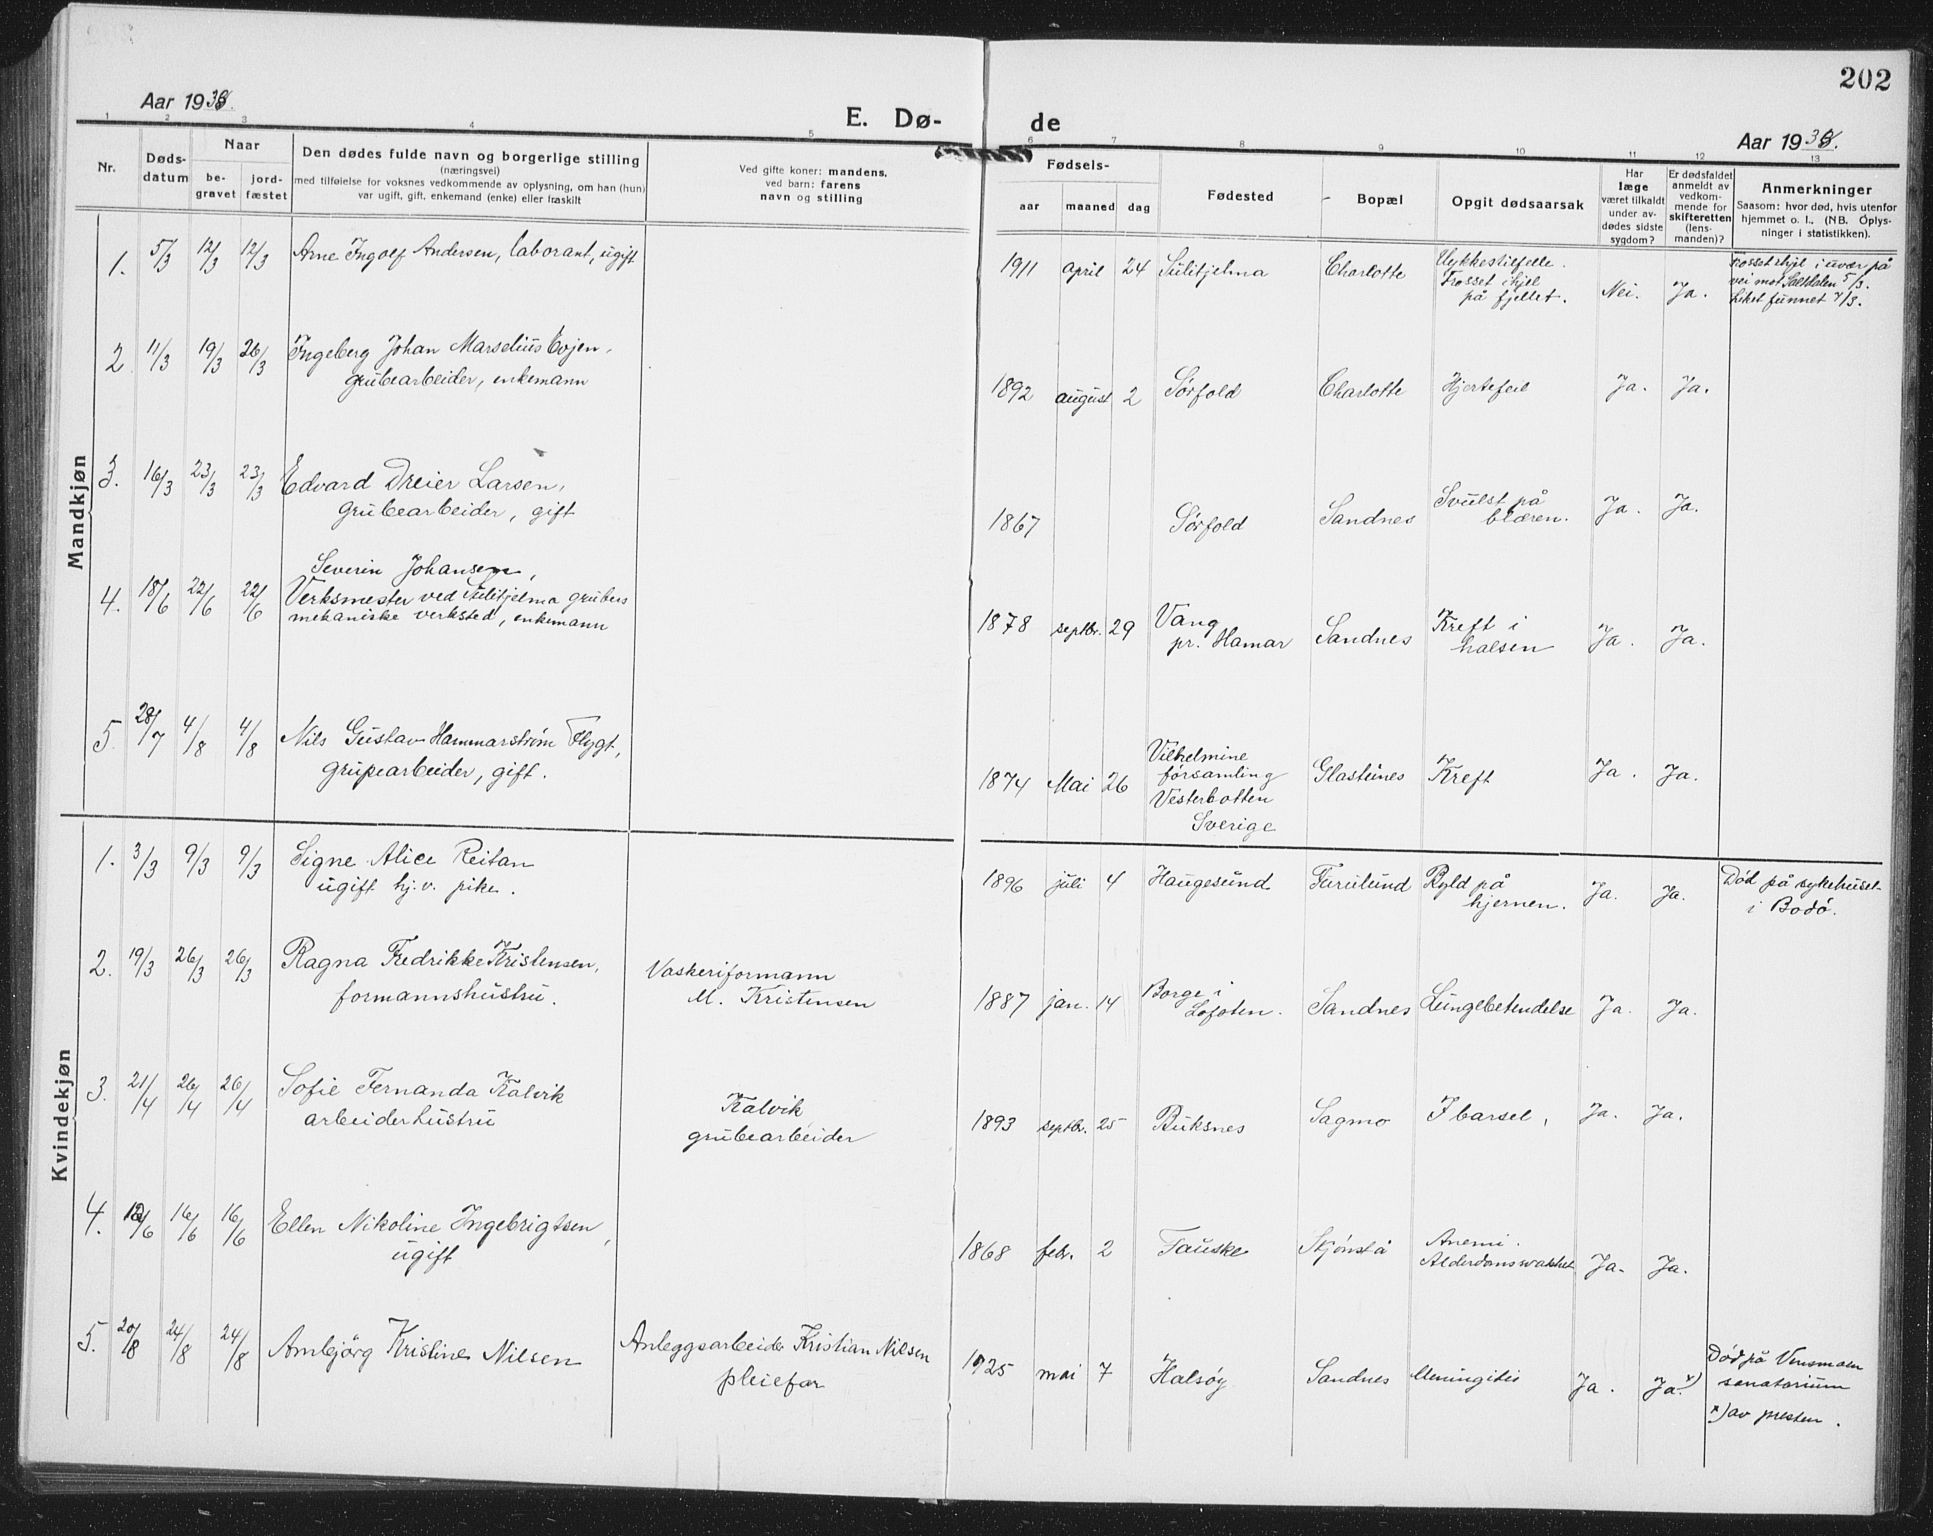 202
Aar 193
E. Dø-
de
Aar 193
1 2 3 4 5 6 7 8 9 10 11 12 13
Nr.
Døds-
datum
Naar
be-
gravet
jord-
fæstet
Den dødes fulde navn og borgerlige stilling
(næringsvei)
med tilføielse for voksnes vedkommende av oplysning, om han (hun)
var ugift, gift, enkemand (enke) eller fraskilt
Ved gifte koner: mandens,
ved barn: farens
navn og stilling
Fødsels-
aar
maaned
dag
Fødested
Bopæl
Opgit dødsaarsak
Har
læge
været tilkaldt
under av-
dødes sidste
sygdom?
Er dødsfaldet
anmeldt av
vedkom-
mende for
skifteretten
(lens-
manden)?
Anmerkninger
Saasom: hvor død, hvis utenfor
hjemmet o. l., (NB. Oplys-
ninger i statistikken).
Mandkjøn
1. 5/3 12/3 12/3 Arne Ingolf Andersen, laborant, ugift
1911 april 24 Sulitjelma Charlotte Ulykkestilfelle.
Frosset ihjel
på fjellet.
Nei. Ja.
Frosset ihjel i uvær på
vei mot Saltdalen 5/3.
Liket funnet 7/3.
2 11/3 19/3 26/3 Ingeberg Johan Marselius Evjen,
grubearbeider, enkemann
1892 august 2 Sørfold Charlotte Hjertefeil Ja. Ja.
3. 16/3 23/3 23/3 Edvard Dreier Larsen,
grubearbeider, gift
1867 Sørfold Sandnes Svulst på
blæren. Ja. Ja.
4. 18/6 22/6 22/6 Severin Johansen,
Verksmester ved Sulitjelma grubers
mekaniske verksted, enkemann
1878 septbr. 29 Vang
pr. Hamar Sandnes Kreft i
halsen Ja. Ja.
5. 28/7 4/8 4/8 Nils Gustav Hammarstrøm Flygt,
grupearbeider, gift.
1874 Mai 26 Vilhelmine
församling
Vesterbotten
Sverige
Glastunes Kreft Ja. Ja.
Kvindekjøn
1. 3/3 9/3 9/3 Signe Alice Reitan
ugift hj.v. pike.
1896 juli 4 Haugesund Furulund Byld på
hjernen. Ja. Ja.
Död på sykehuset
i Bodö.
2. 19/3 26/3 26/3 Ragna Fredrikke Kristensen,
formannshustru.
Vaskeriformann
M. Kristensen
1887 jan. 14 Borge i
Lofoten. Sandnes Lungebetendelse Ja. Ja.
3. 21/4 26/4 26/4 Sofie Fernanda Kalvik
arbeiderhustru
Kalvik
grubearbeider
1893 septbr. 25 Buksnes Sagmo I barsel, Ja. Ja.
4. 16/6 16/6 Ellen Nikoline Ingebrigtsen,
ugift
1868 febr. 2 Fauske Skjönstå Anemi.
Alderdomssvakhet Ja. Ja.
5. 20/8 24/8 24/8 Arnbjörg Kristine Nilsen
Anleggsarbeider Kristian Nilsen
pleiefar
1925 mai 7 Halsöy Sandnes Meningitis Ja. Ja. x)
Död på Vensmoen
sanatorium
x) av presten.